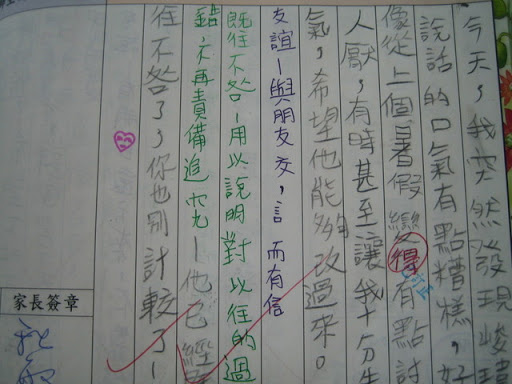 今天，我突然發現峻瑋
說話的口氣有點糟糕，好
像從上個暑假變得有點討
人厭，有時甚至讓我十分生
氣，希望他能夠改過來。
友誼—與朋友交，言而有信
既往不咎—用以說明對以往的過
錯，不再責備追究—他已經
往不咎了，你也別計較了—
家長簽章